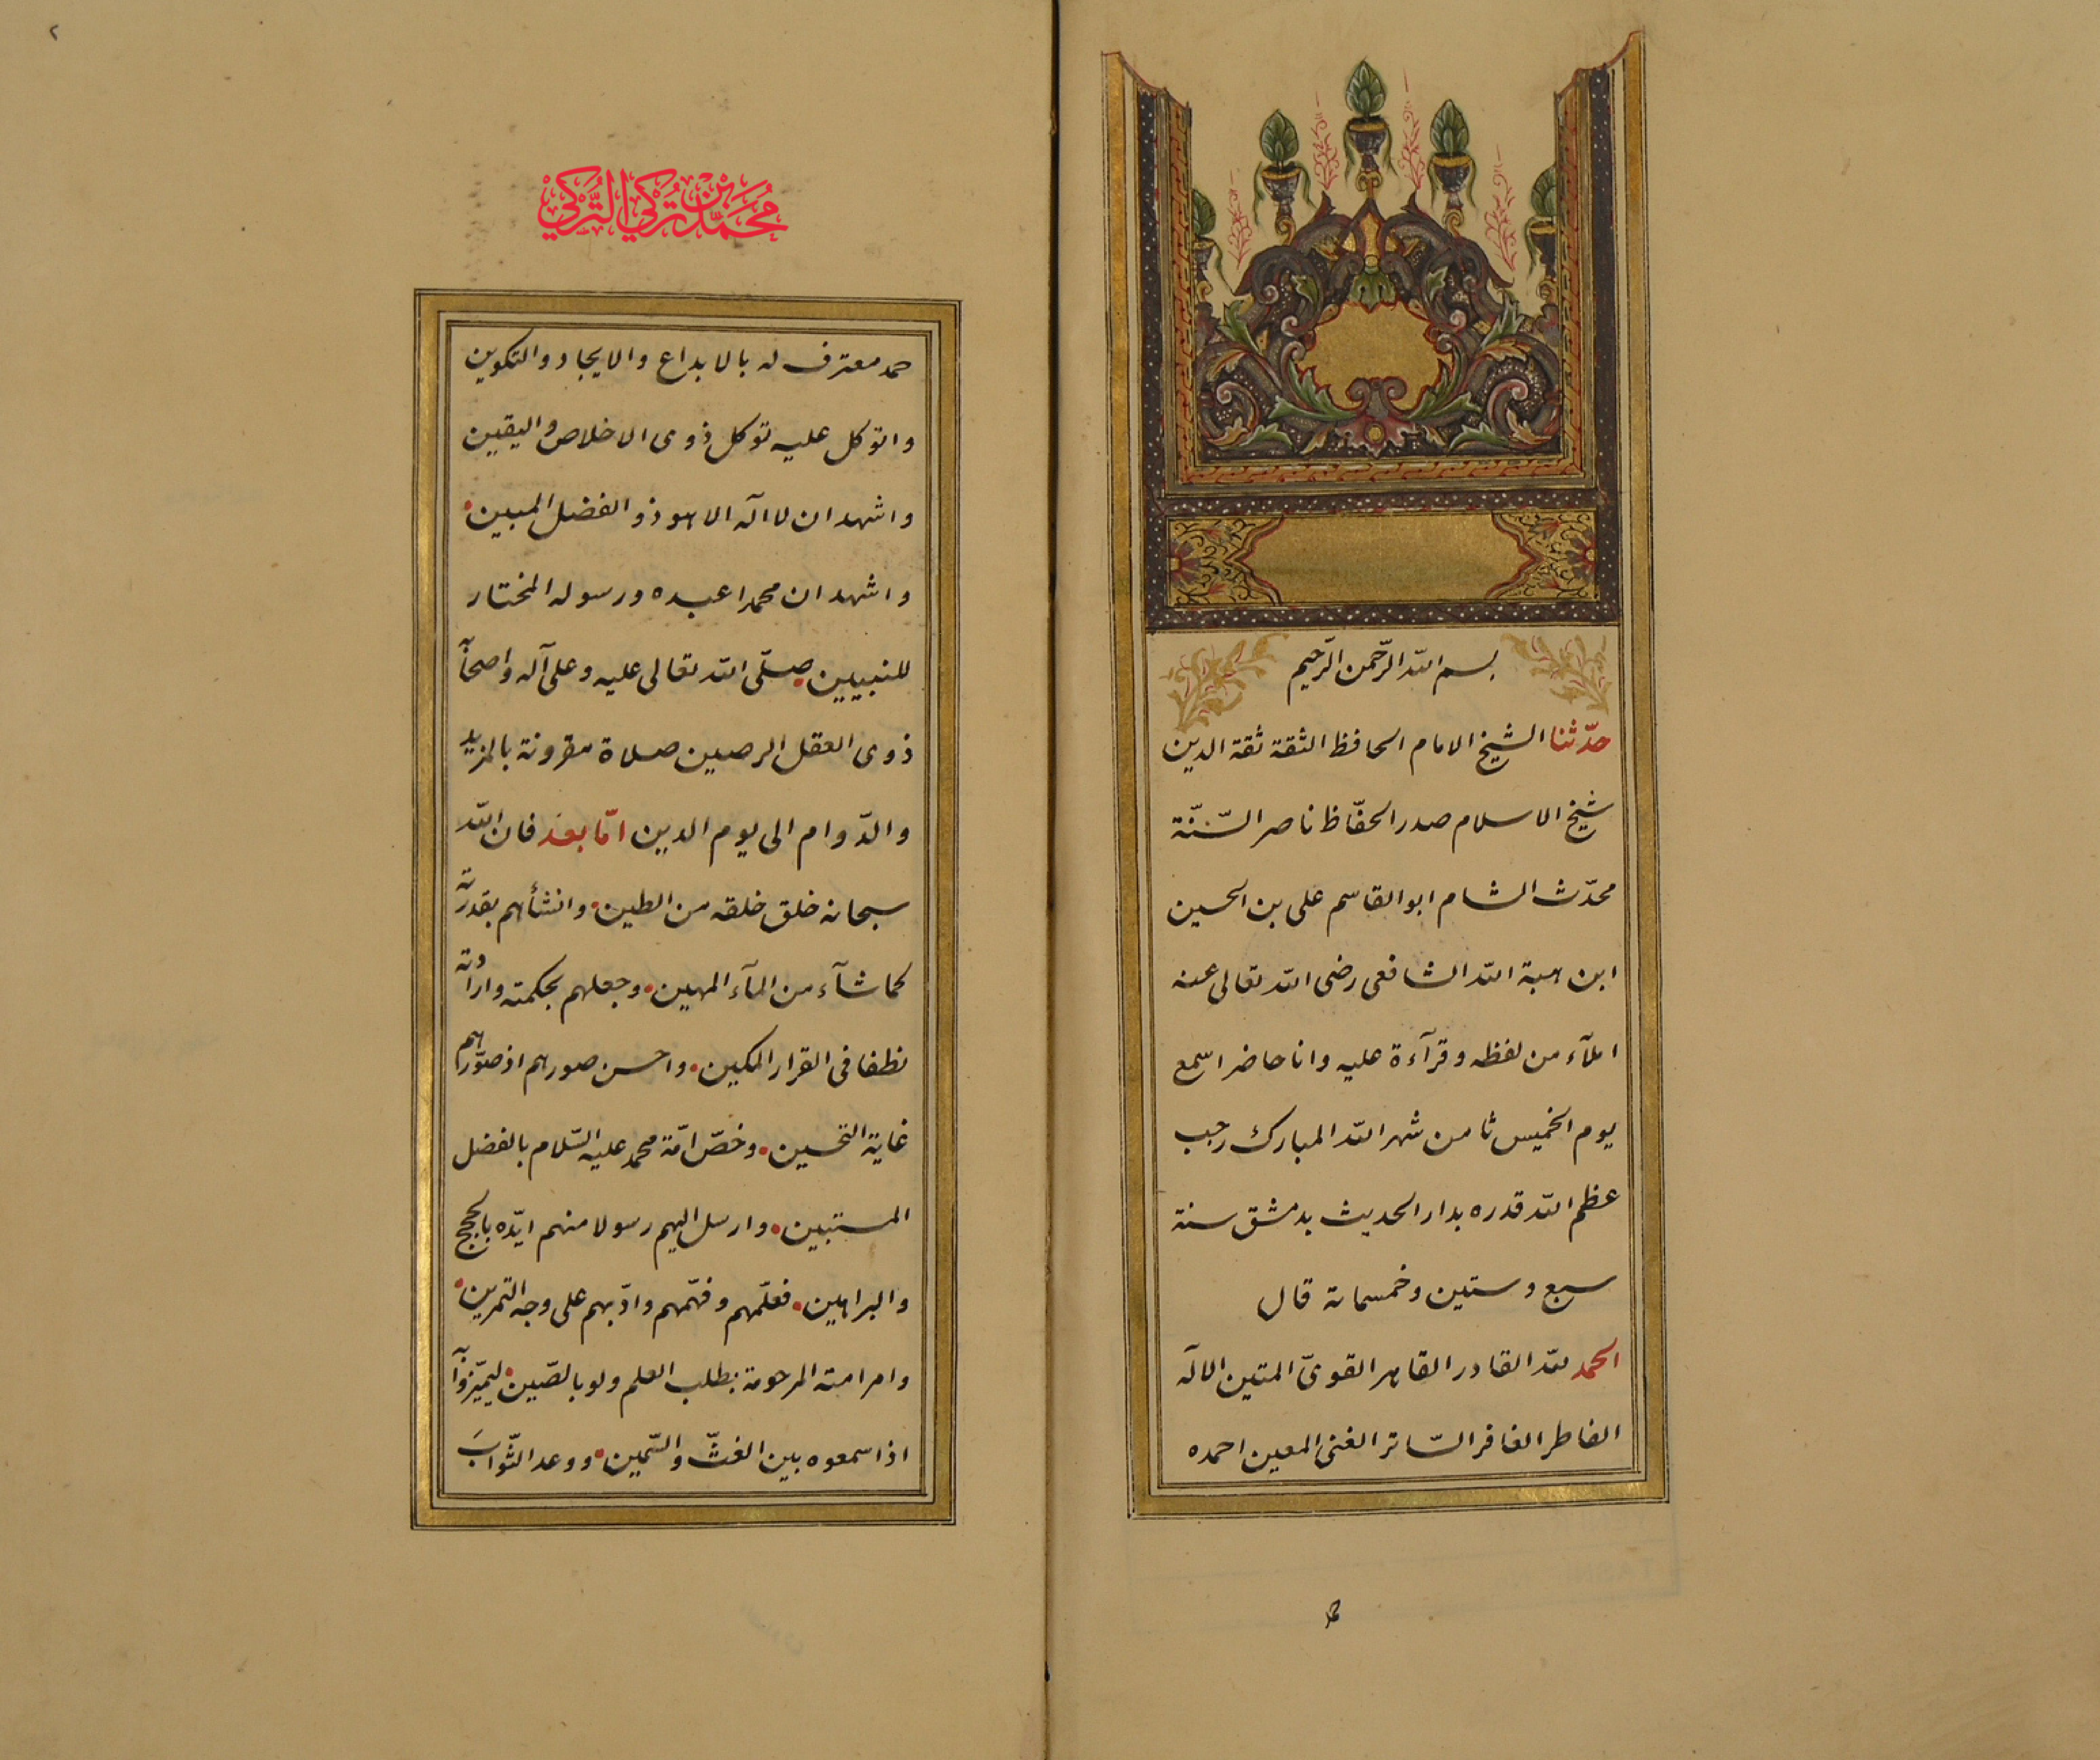 بسم الله الرّحمن الرّحيم
حدّثنا الشيخ الامام الحافظ الثقة ثقة الدين
شيخ الاسلام صدر الحفّاظ ناصر السّنّة
محدّث الشام ابو القاسم على بن الحسين
ابن هبة الله الشافعى رضى الله تعالى عنه
املآء من لفظه وقرآءة عليه وانا حاضر اسمع
يوم الخميس ثامن شهر الله المبارك رجب
عظم الله قدره بدار الحديث بدمشق سنة
سبع وستين وخمسمائة قال
الحمد لله القادر القاهر القوىّ المتين الاله
الفاطر الغافر السّاتر الغنى المعين احمده
حمد
٢
محمد بن تركي التركي
حمد معترف له بالابداع والايجاد والتكوين
واتوكل عليه توكل ذوى الاخلاص واليقين
واشهد ان لا اله الا هو ذو الفضل المبين
واشهد ان محمدا عبده ورسوله المختار
للنبيين صلّى الله تعالى عليه وعلى آله واصحابه
ذوى العقل الرصين صلاة مقرونة بالمزيد
والدّوام الى يوم الدين امّا بعد فان الله
سبحانه خلق خلقه من الطين وانشأهم بقدرته
كما شآء من المآء المهين وجعلهم بحكمته وارادته
نطفا فى القرار المكين واحسن صورهم اذ صوّرهم
غاية التحسين وخصّ امّة محمد عليه السّلام بالفضل
المستبين وارسل اليهم رسولا منهم ايّده بالحجج
والبراهين فعلّمهم وفهّمهم وادّبهم على وجه التمرين
وامر امته المرحومة بطلب العلم ولو بالصّين ليميّزوا به
اذا سمعوه بين الغثّ والسّمين ووعد الثّوابَ